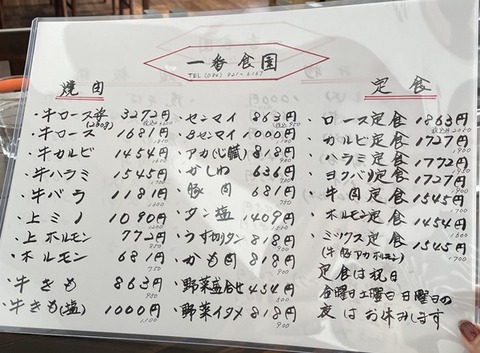 一番食園
焼肉
・牛ロース芯 3272円
(200g)
・牛ロース 1681円
・牛カルビ 1454円
・牛ハラミ 1545円
・牛バラ 1181円
・上ミノ 1090円
・上ホルモン 772円
・ホルモン 681円
・牛きも 863円
・牛きも(塩) 1000円
・センマイ 863円
・Bセンマイ 1000円
・アカ(心臓) 818円
・かしわ 636円
・豚肉 681円
・タン塩 1409円
・うす切りタン 818円
・かも肉 818円
・野菜盛合せ 454円
・野菜イタメ 818円
定食
・ロース定食 1863円
・カルビ定食 1727円
・ハラミ定食 1772円
・ヨクバリ定食 1727円
・牛肉定食 1545円
・ホルモン定食 1454円
・ミックス定食 1545円
定食は祝日
金曜日土曜日日曜日の
夜はお休みします